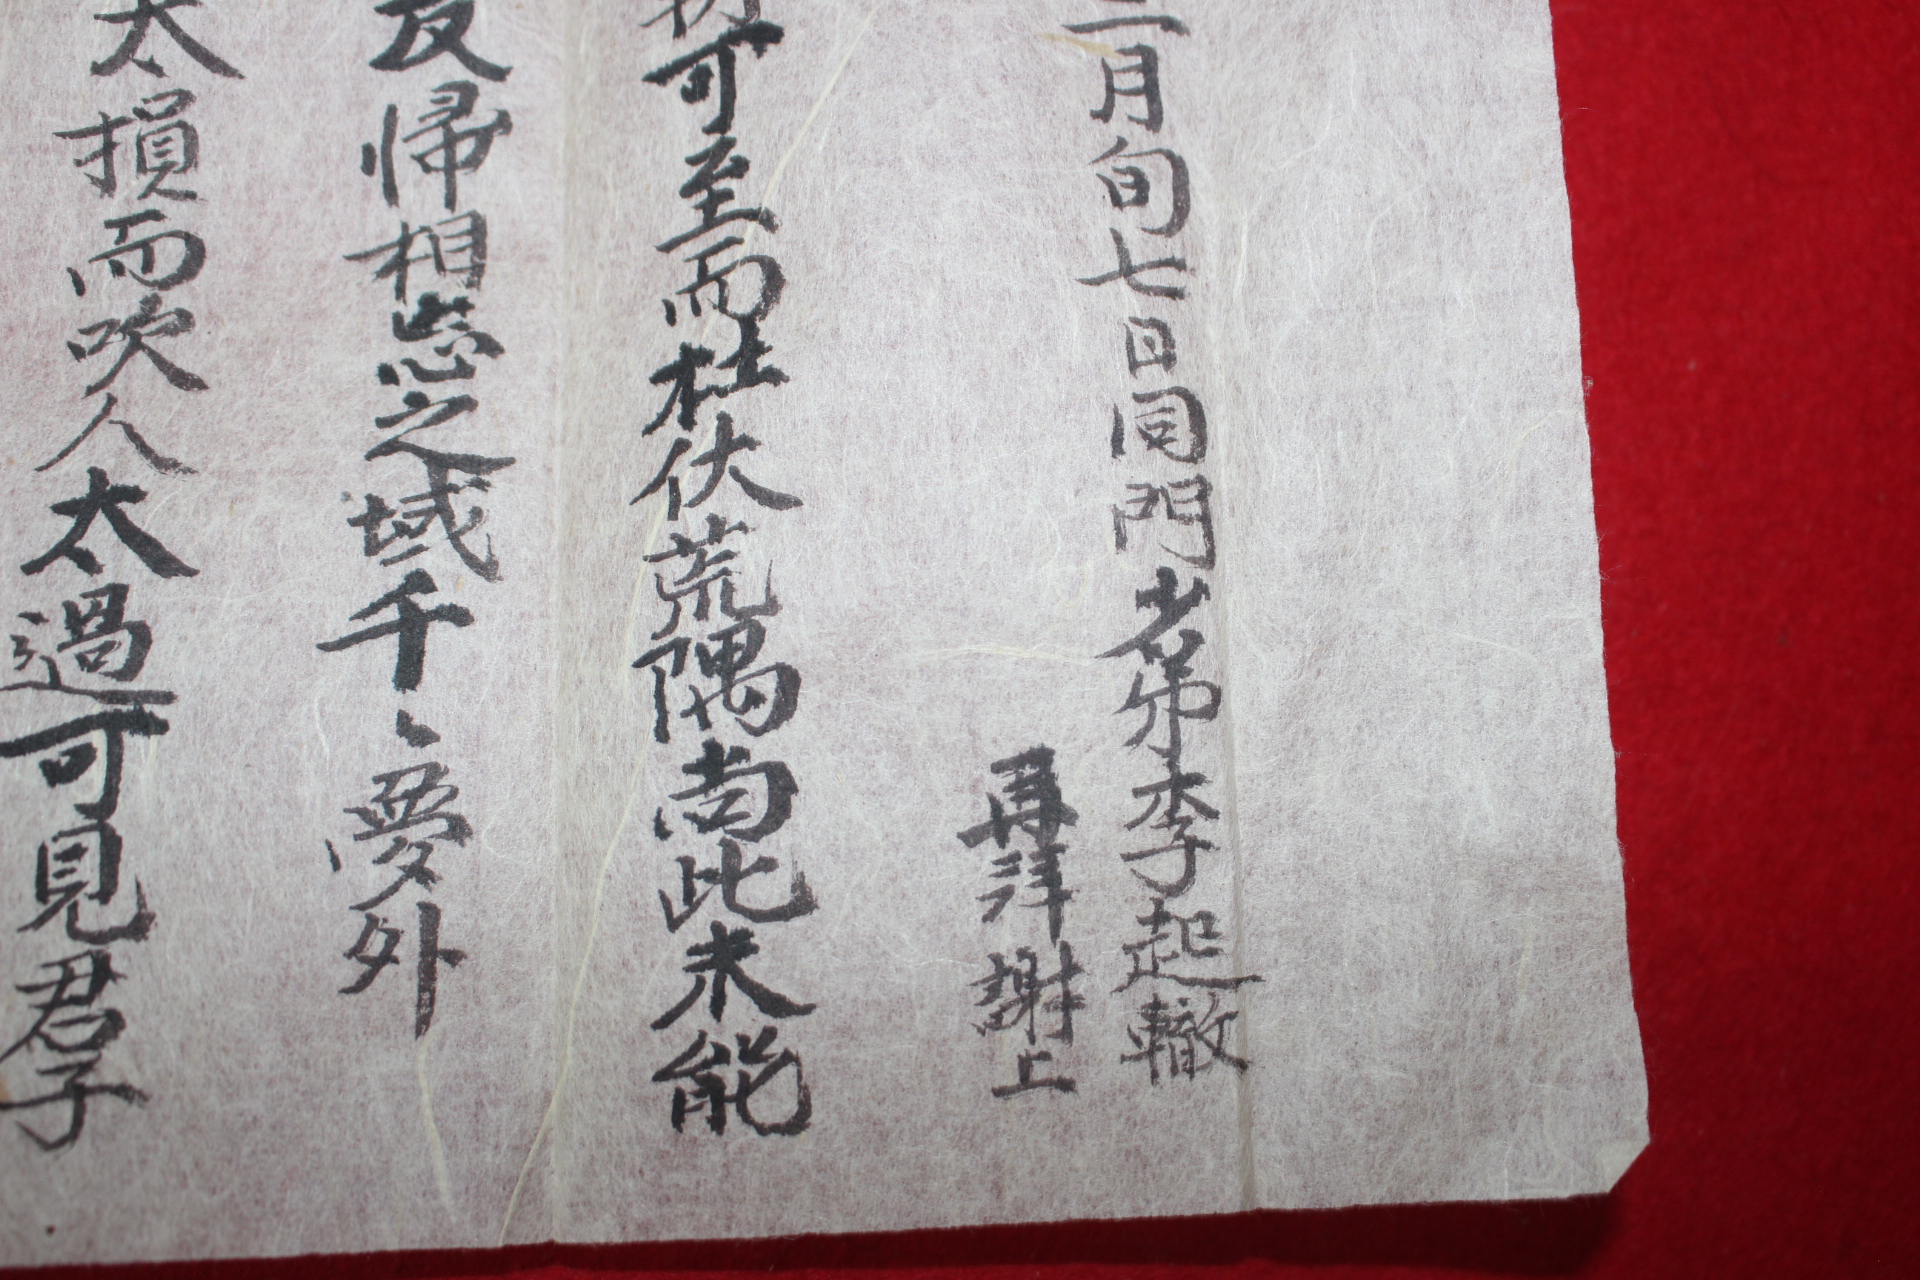 二月旬七日同門少弟李起轍
再拜謝上
可至而杜伏荒隅尚此未能
友帰相忘之域千〻夢外
太損而吹人太過可見君子